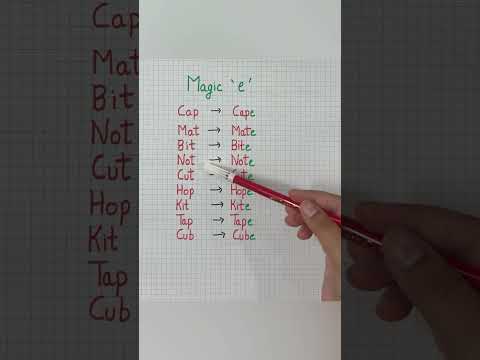 Cap
Mat
Bit
Not
Cut
Hop
Kit
Tap
Cub
Magic 'e'
Cap → Cape
Mat → Mate
Bit → Bite
Not → Note
Cut
Hop → Hope
Kit → Kite
Tap → Tape
Cub → Cube